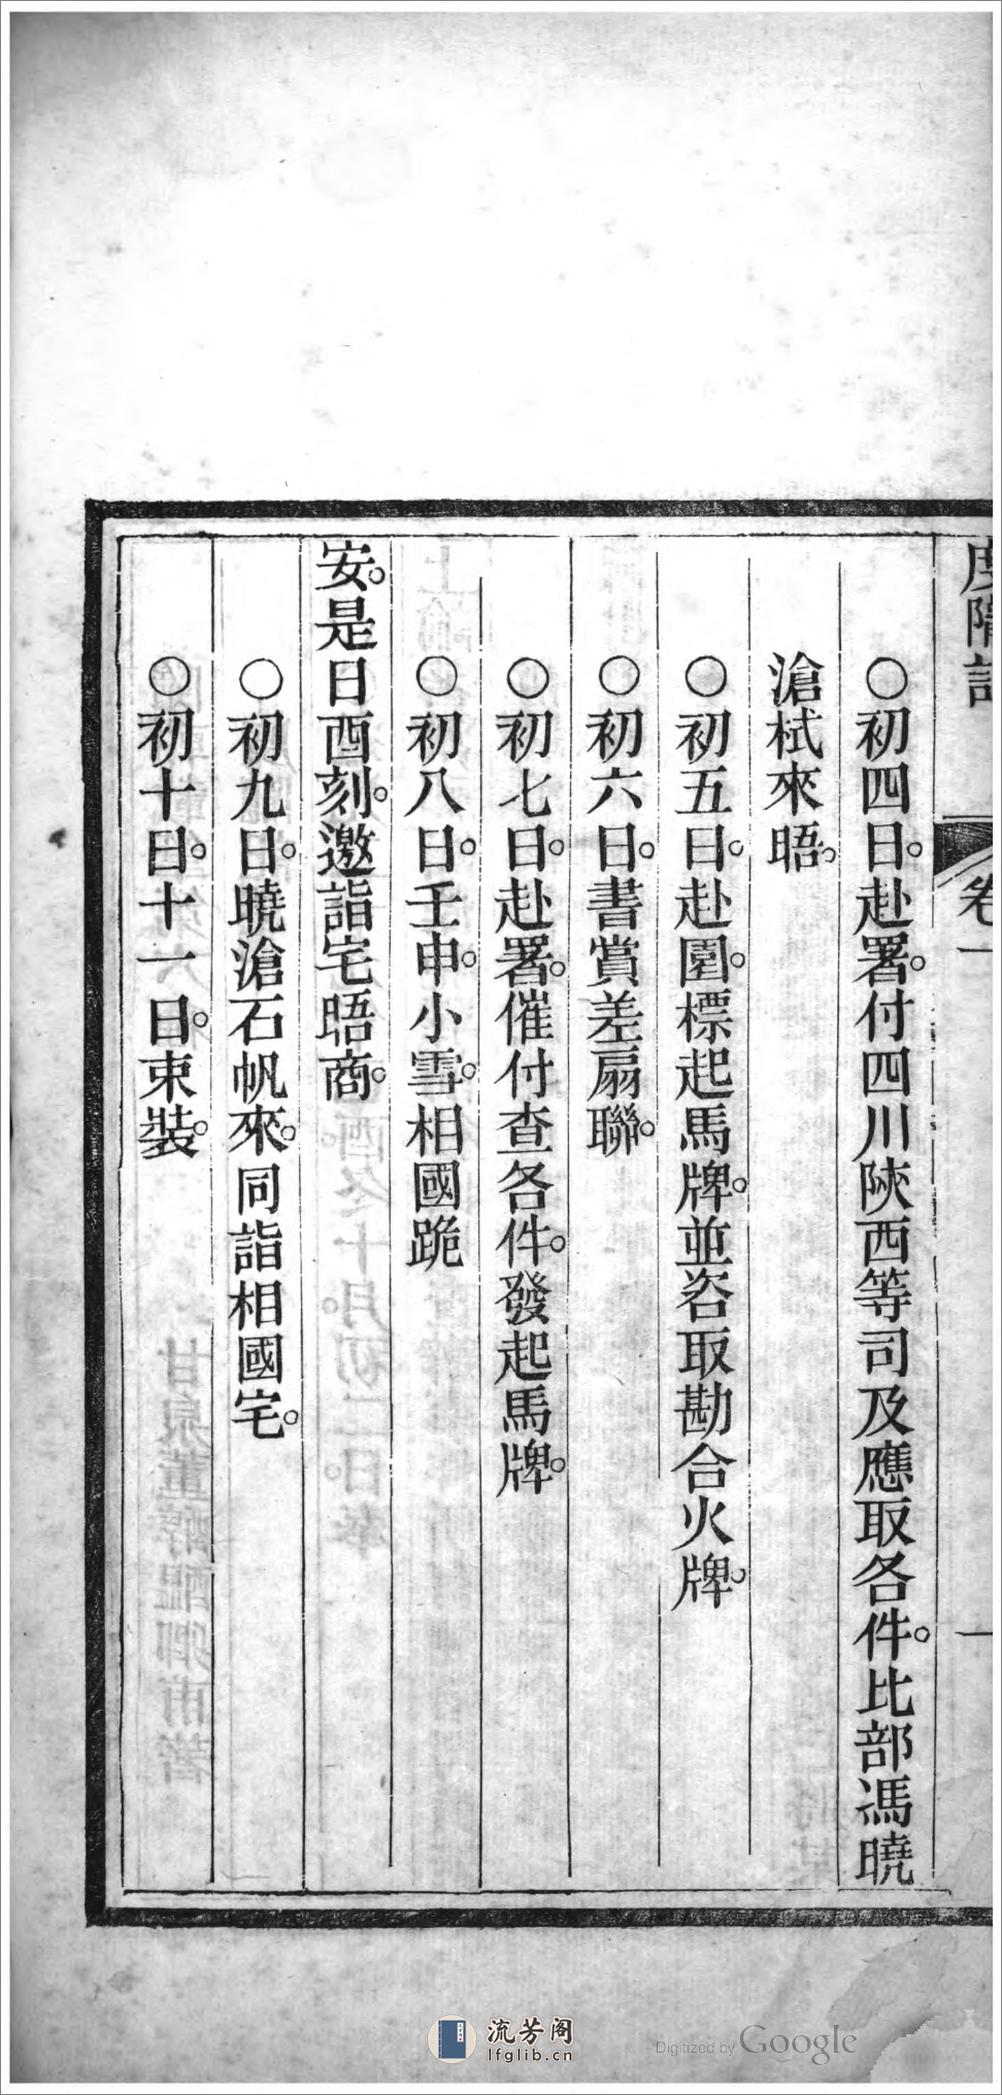 度隴記
卷一
一
○初四日。赴署。付四川陝西等司及應取各件。比部馮曉
滄栻來晤。
○初五日。赴園。標起馬牌。並咨取勘合火牌。
○初六日。書賞差扇聯。
○初七日。赴署。催付查各件。發起馬牌。
○初八日。壬申。小雪。相國跪
安。是日酉刻。邀詣宅晤商。
○初九日。曉滄石帆來。同詣相國宅。
○初十日。十一日。束裝。
流芳阁
lfglib.cn
Digitized by Google